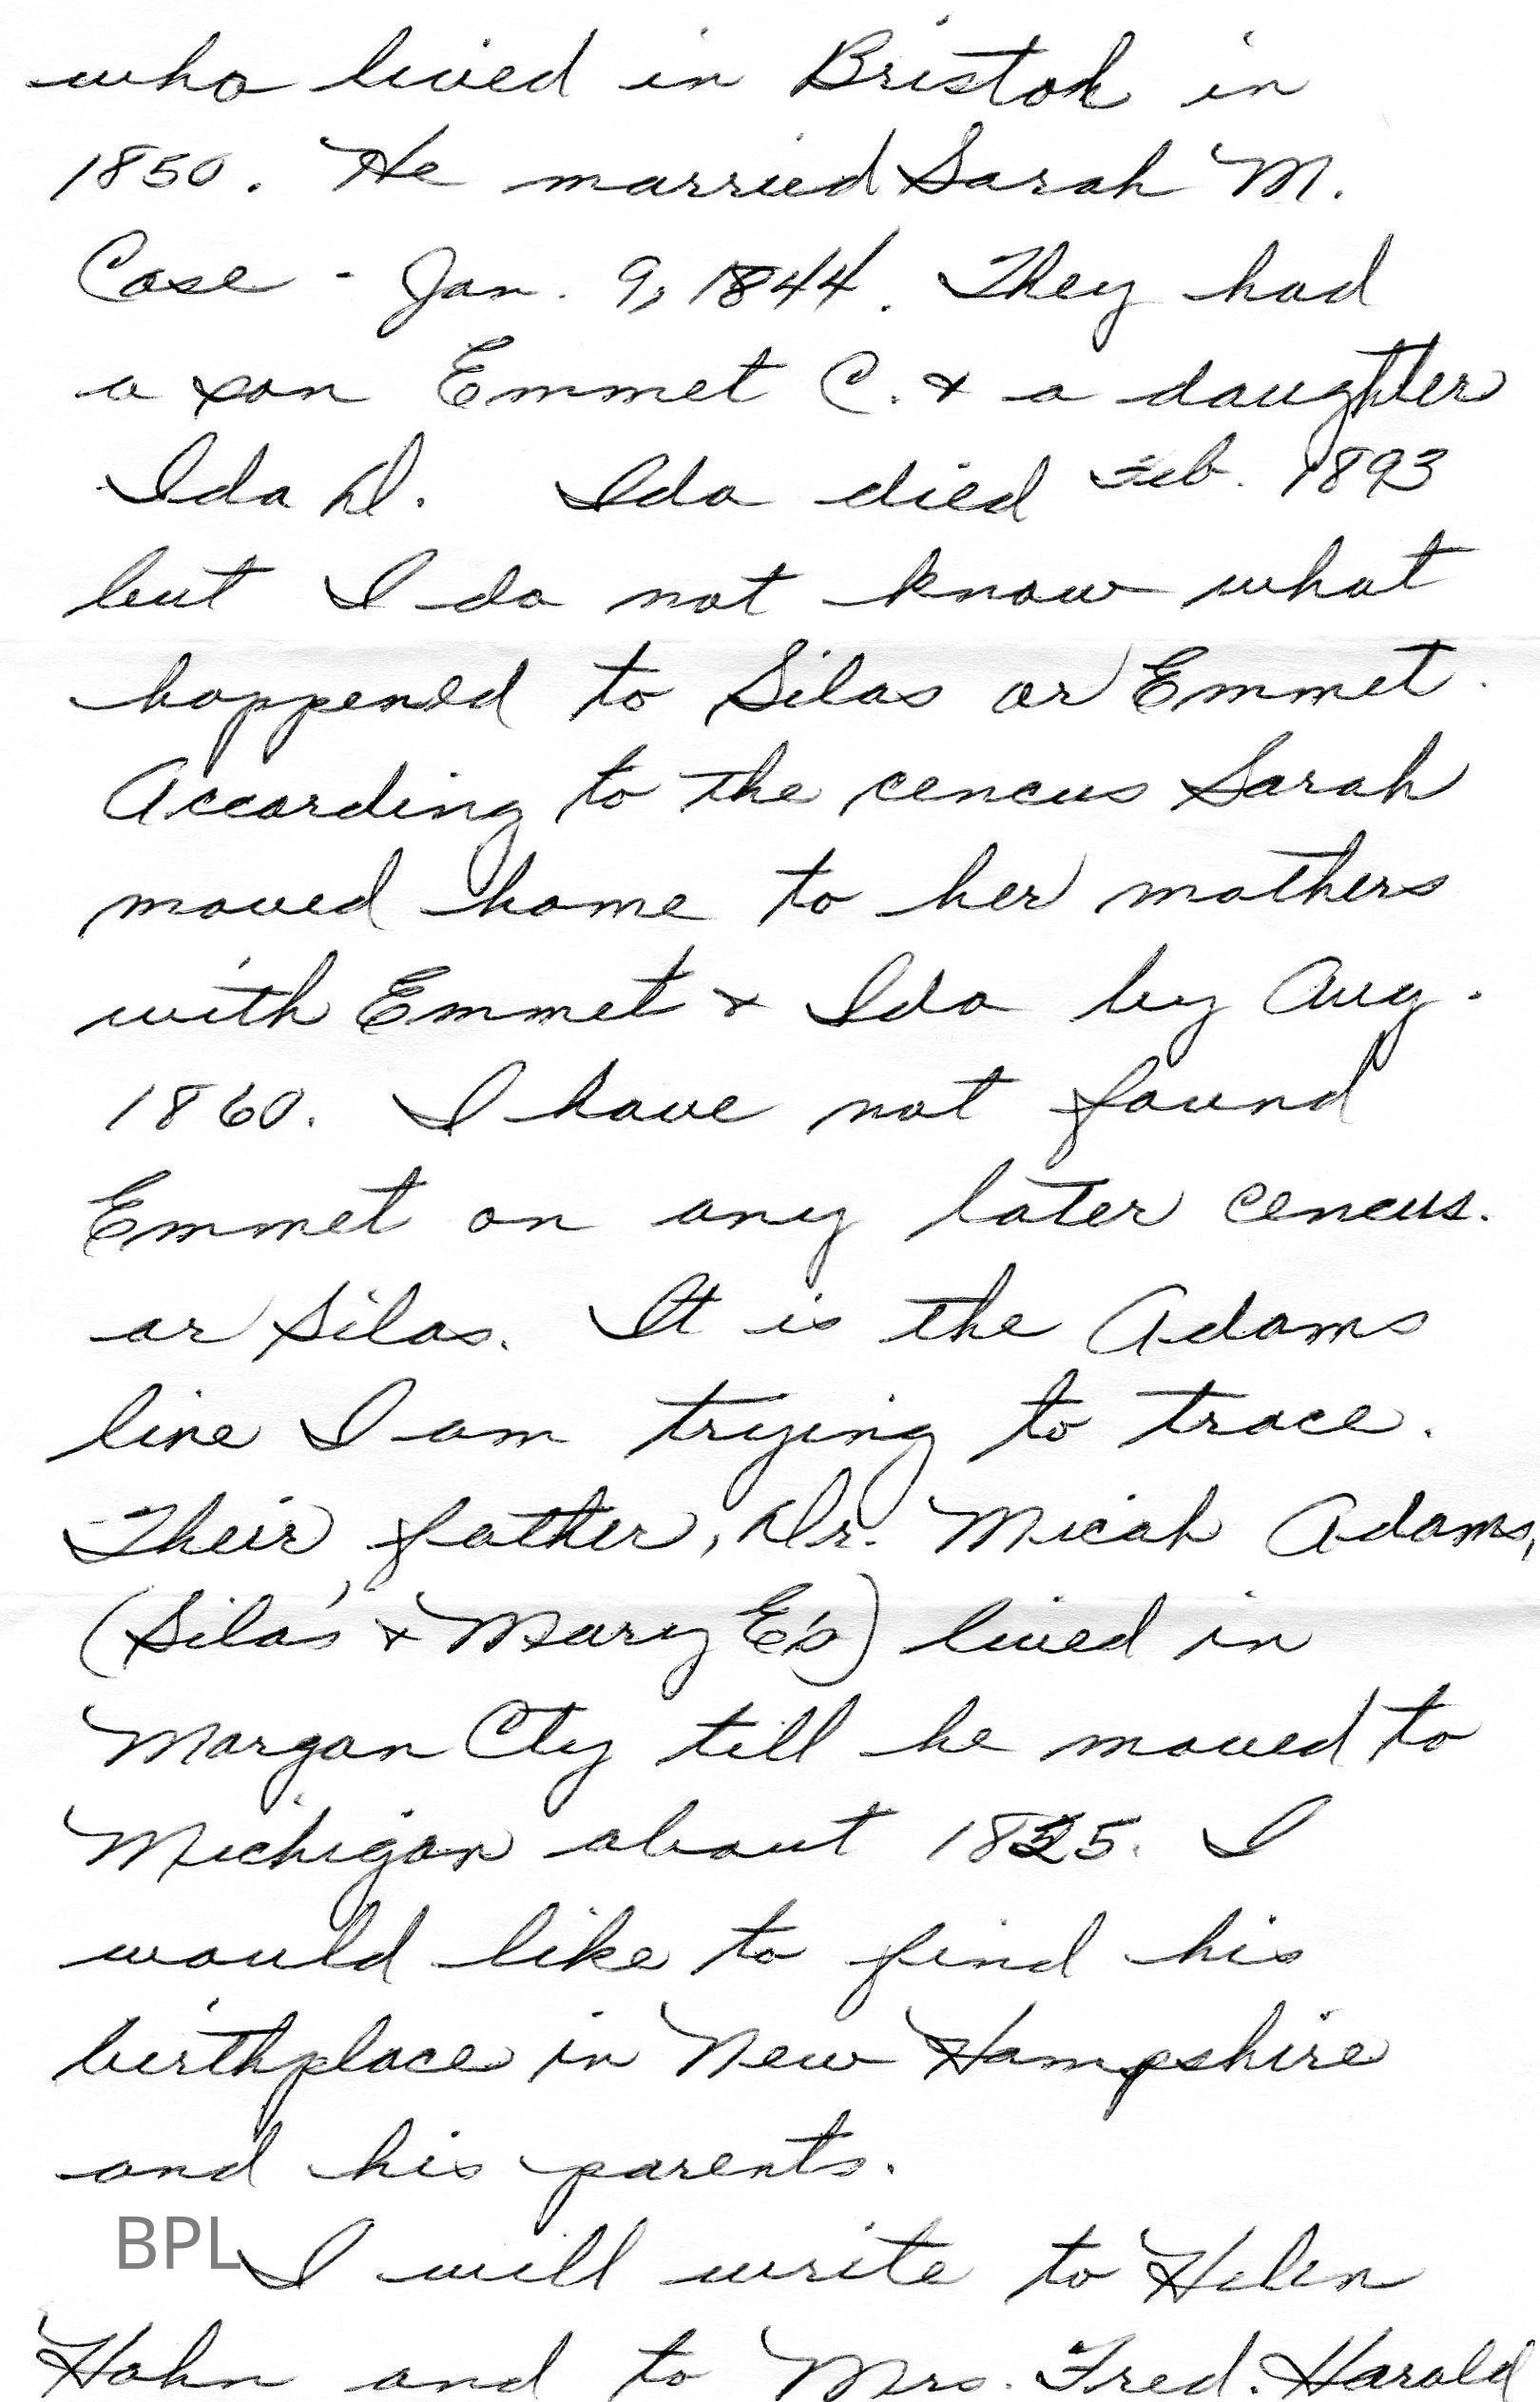 who lived in Bristol in
1850. He married Sarah M.
Case - Jan. 9, 1844. They had
a son Emmet C. & a daughter
Ida D. Ida died Feb. 1893
but I do not know what
happened to Silas or Emmet.
According to the cencus Sarah
moved home to her mothers
with Emmet & Ida by Aug.
1860. I have not found
Emmet on any later cencus.
or Silas. It is the Adams
line I am trying to trace.
Their father, Dr. Micah Adams,
(Silas' & Mary E's) lived in
Morgan Cty till he moved to
Michigan about 1825. I
would like to find his
birthplace in New Hampshire
and his parents.
BPL
I will write to Helen
Hahn and to Mrs. Fred. Harold